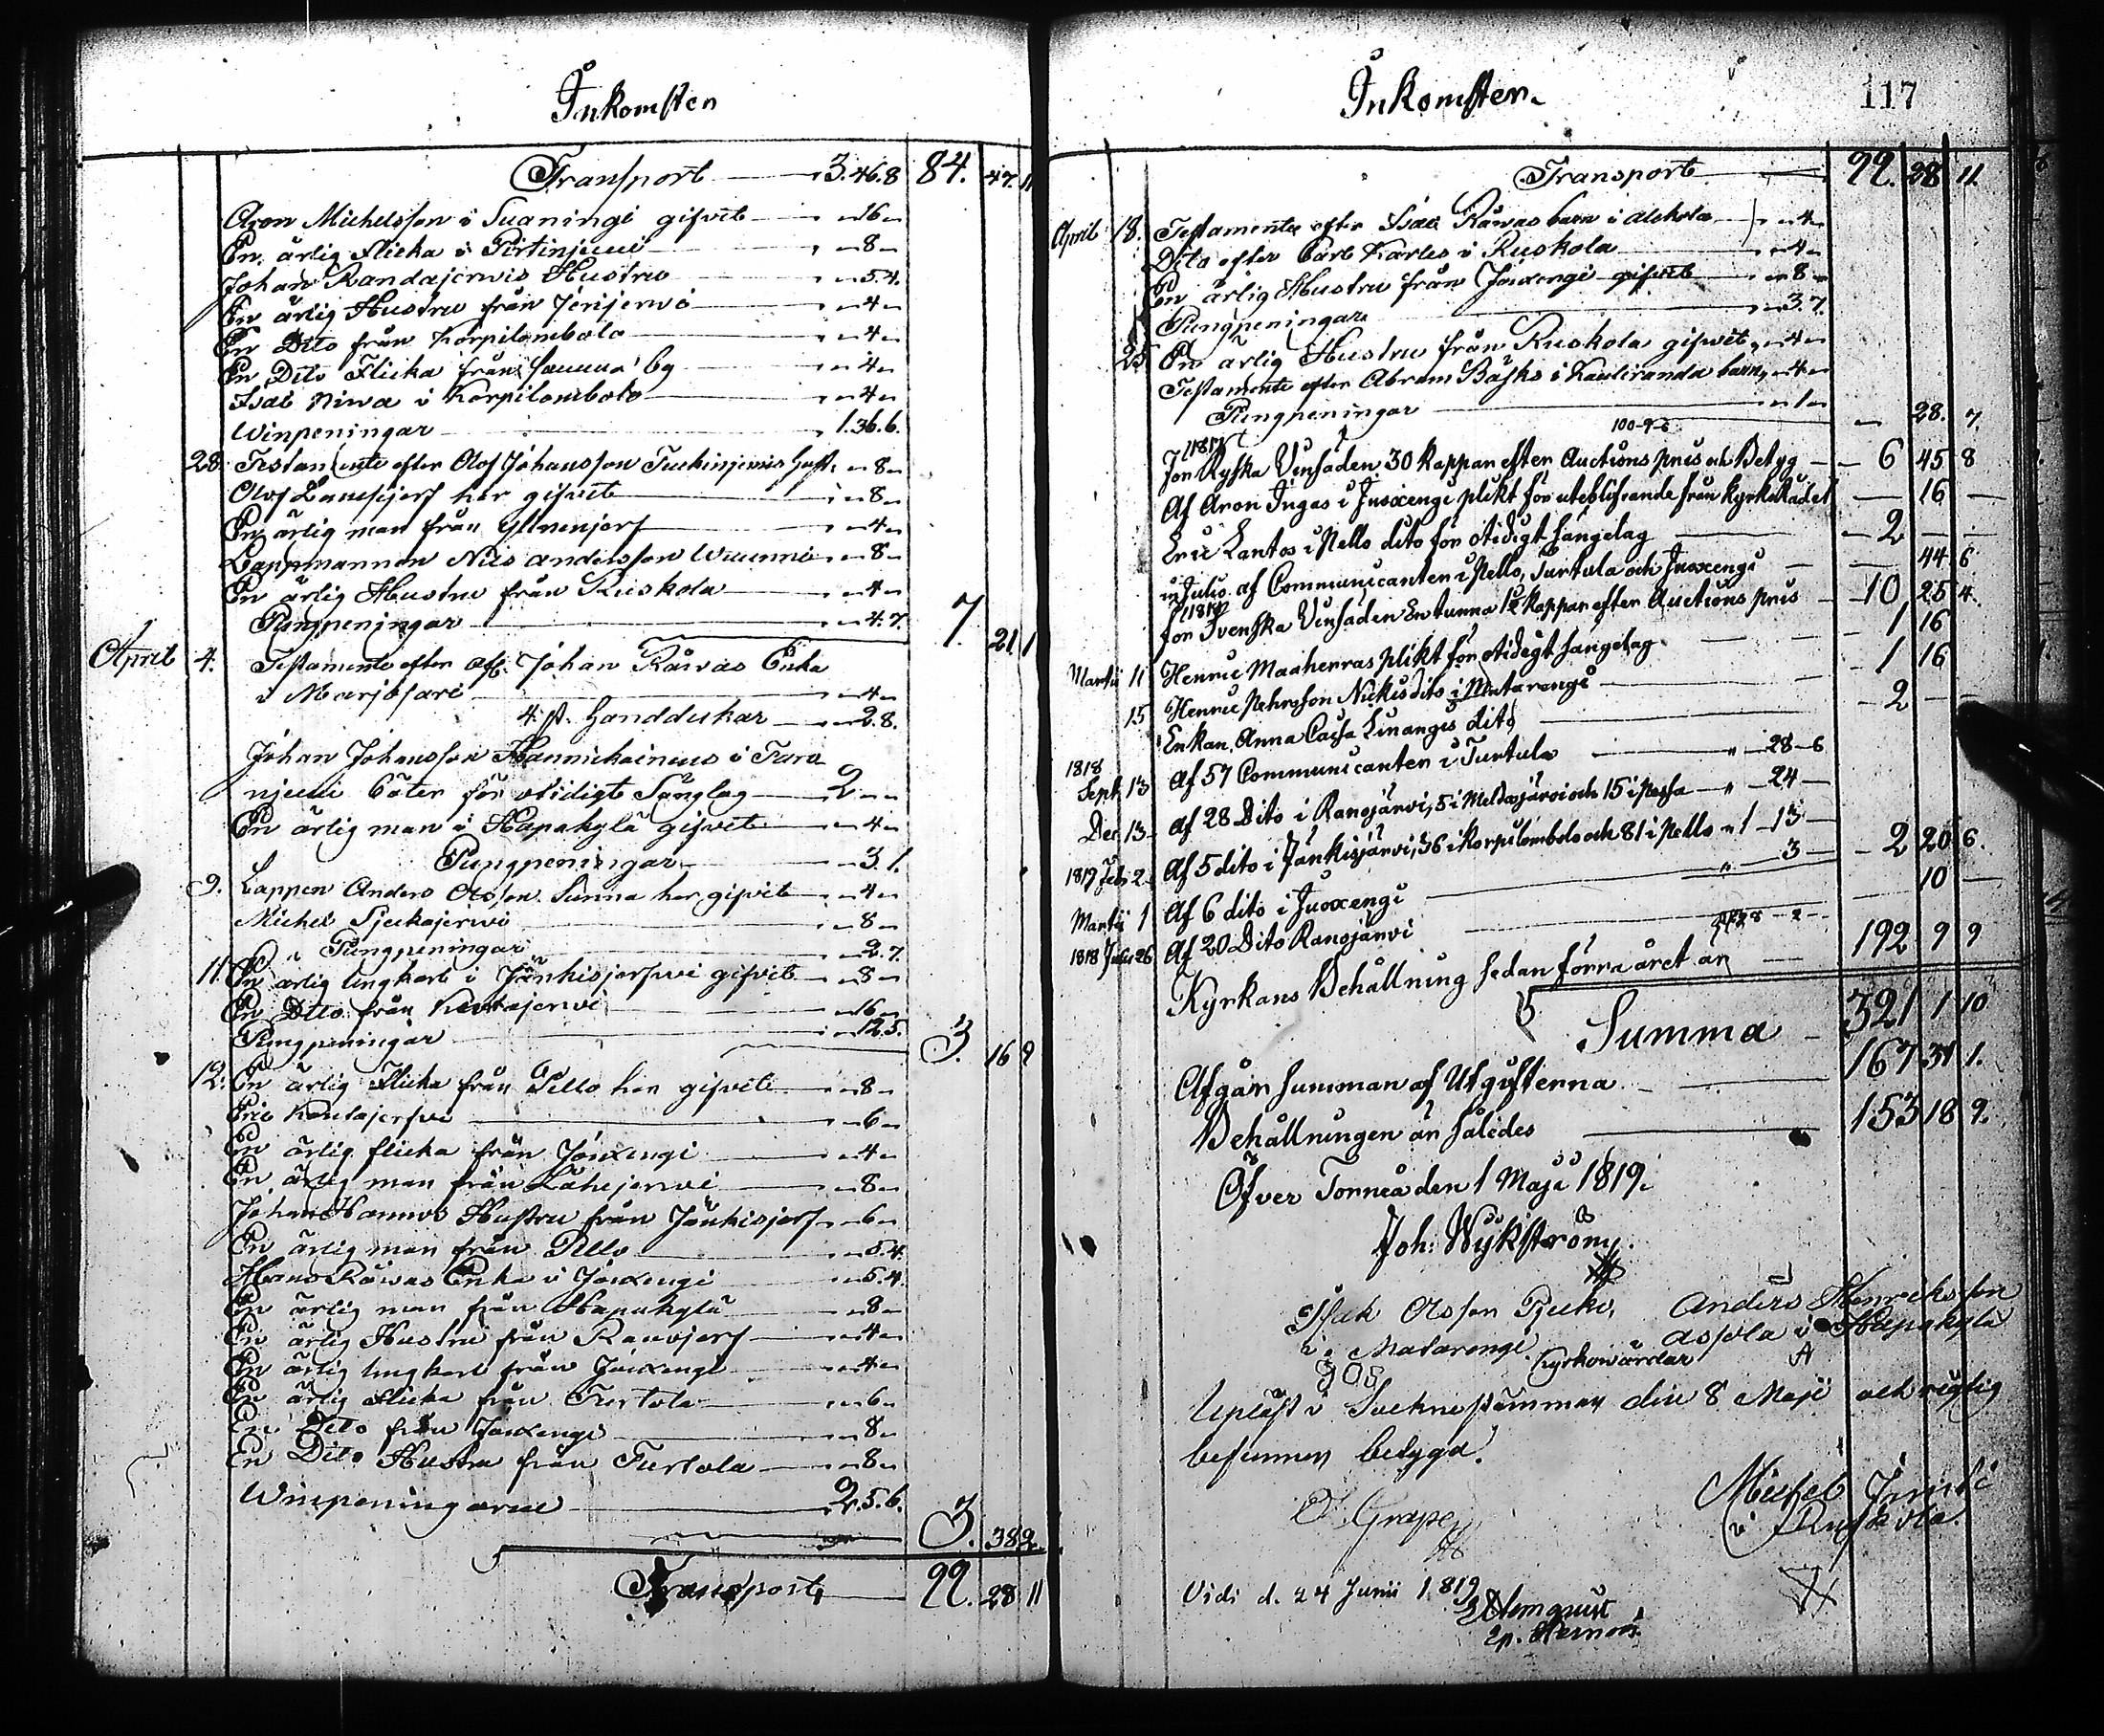 Inkomsten
Transport 3.46.8 84. 47. 11
Aron Michelsson i Tuaningi gifvit 16
En ärlig Flicka i Pirtinjemi 8
Johan Randajerwis Hustru 5.4.
En ärlig Hustru från Jerijerwi 4
En Dito från Korpilombolo 4
En Dito Flicka från by 4
Isac Niwa i Korpilombolo 4
Winpeningar 1.36.6.
28. Testamente efter Olof Johansson Hust. 8
Olof har gifvit 8
En ärlig man från Ylinenjerf 4
Lappmannen Nils Andersson 8
En ärlig Hustru från Ruskola 4
Pungpeningar 4.7. 7. 21 1
April 4. Testamente efter Afl. Johan Råwas Enka
i Marjosari 4
4 st. Handdukar 2.8.
Johan Johansson Hannukainens i Tura
njemi Böter för otidigt Sänglag 2
En ärlig man i Hapakylä gifvit 4
Pungpeningar 3.1.
9. Lappen Anders Olsson Sunna har gifvit 4
Michel Pjeckajerwi 8
Pungpeningar 2.7.
11. En ärlig ungkarl i Jänkisjerfwi gifvit 8
En Dito från 16
Pungpeningar 12.5. 3. 16 9
12. En ärlig Flicka från Pello har gifvit 8
Eric Kentajerfwi 6
En ärlig flicka från Jouxengi 4
En ärlig man från Lahejerwi 8
Johan Hannus Hustru från Jänkisjerf 6
En ärlig man från Pello 5.4.
Råwas Enka i Jouxengi 5.4.
En ärlig man från Hapakylä 8
En ärlig Hustru från Ranojerf 4
En ärlig ungkarl från Jouxengi 4
En ärlig Flicka från Turtola 6
En Dito från Jouxengi 8
En Dito Hustru från Turtola 8
Winpeningarne 2.5.6. 3. 38 2.
Transport 99. 28 11
Inkomsten. 117
Transport 99. 28 11.
April 18. Testamente efter Isac Råwas barn i Alckola 4
Dito efter Carl Karles i Kuskola 4
En ärlig Hustru från Jouxengi gifvit 8
Pungpeningar 3.7.
25 En ärlig Hustru från Ruskola gifvit 4
Testamente efter Abram Bäcks i Kauliranda barn 4
Pungpeningar 1 28. 7.
1817
för Ryska Vinsäden 30 kappar efter Auctions pris och Betyg 6 45 8
Af Aron Ingas i Juoxengi plikt för uteblifvande från kyrkoRådet 16
Eric Lantos i Pello dito för otidigt sängelag 2
in Julio af Communicanter i Pello, Turtola och Juoxengi 44 6
för Svenska Vinsäden En tunna 1½ kappar efter Auctions pris 10 25 4.
Martii 11 Henric Maaherras plikt för otidigt sängelag 1 16
15 Henric Pehrsson Nickis dito i Matarengi 1 16
Enkan Anna Caisa Linangis dito 2
1818
Sept. 13 Af 57 Communicanter i Turtula 28 6
Dec. 13 af 28 Dito i Ranojärvi, 5 i Meldasjärvi och 15 i Pessa 24
1819 Feb. 2. Af 5 dito i Jänkisjärvi, 36 i Korpilombolo och 81 i Pello 1 13
Martii 1 Af 6 dito i Juoxengi 3 2 20 6.
1818 Julii 26 Af 20 Dito Ranojärvi 10
Kyrkans Behållning sedan förra året är 192 9 9
Summa 321 1 10
Afgår summan af Utgifterna 167 31 1.
Behållningen är således 153 18 9.
Öfver Torneå den 1 Maji 1819.
Joh: Wijkström.
Isak Olsson Pjecko, Anders Henriksson
i Matarengi Assola i Hapakylä
Kyrkowärdar
Upläst i Sockne stämman den 8 Maji och rigtig
befunnen betygar.
I. Grape
Michel
i Ruskola
Vidi d. 24 Junii 1819
Almquist
Ep. Hernös.